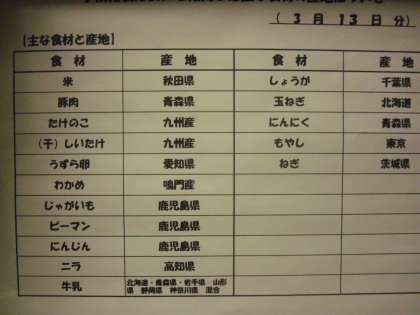 (3月13日分)
【主な食材と産地】
食材 産地 食材 産地
米 秋田県 しょうが 千葉県
豚肉 青森県 玉ねぎ 北海道
たけのこ 九州産 にんにく 青森県
(干)しいたけ 九州産 もやし 東京
うずら卵 愛知県 ねぎ 茨城県
わかめ 鳴門産
じゃがいも 鹿児島県
ピーマン 鹿児島県
にんじん 鹿児島県
ニラ 高知県
牛乳 北海道・青森県・岩手県 山形
県 静岡県 神奈川県 混合